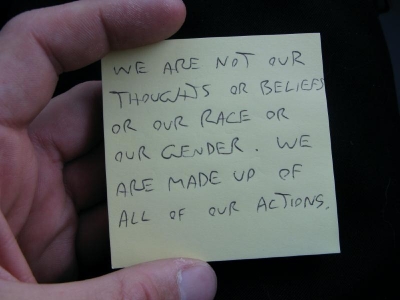 WE ARE NOT OUR
THOUGHTS OR BELIEFS
OR OUR RACE OR
OUR GENDER. WE
ARE MADE UP OF
ALL OF OUR ACTIONS.